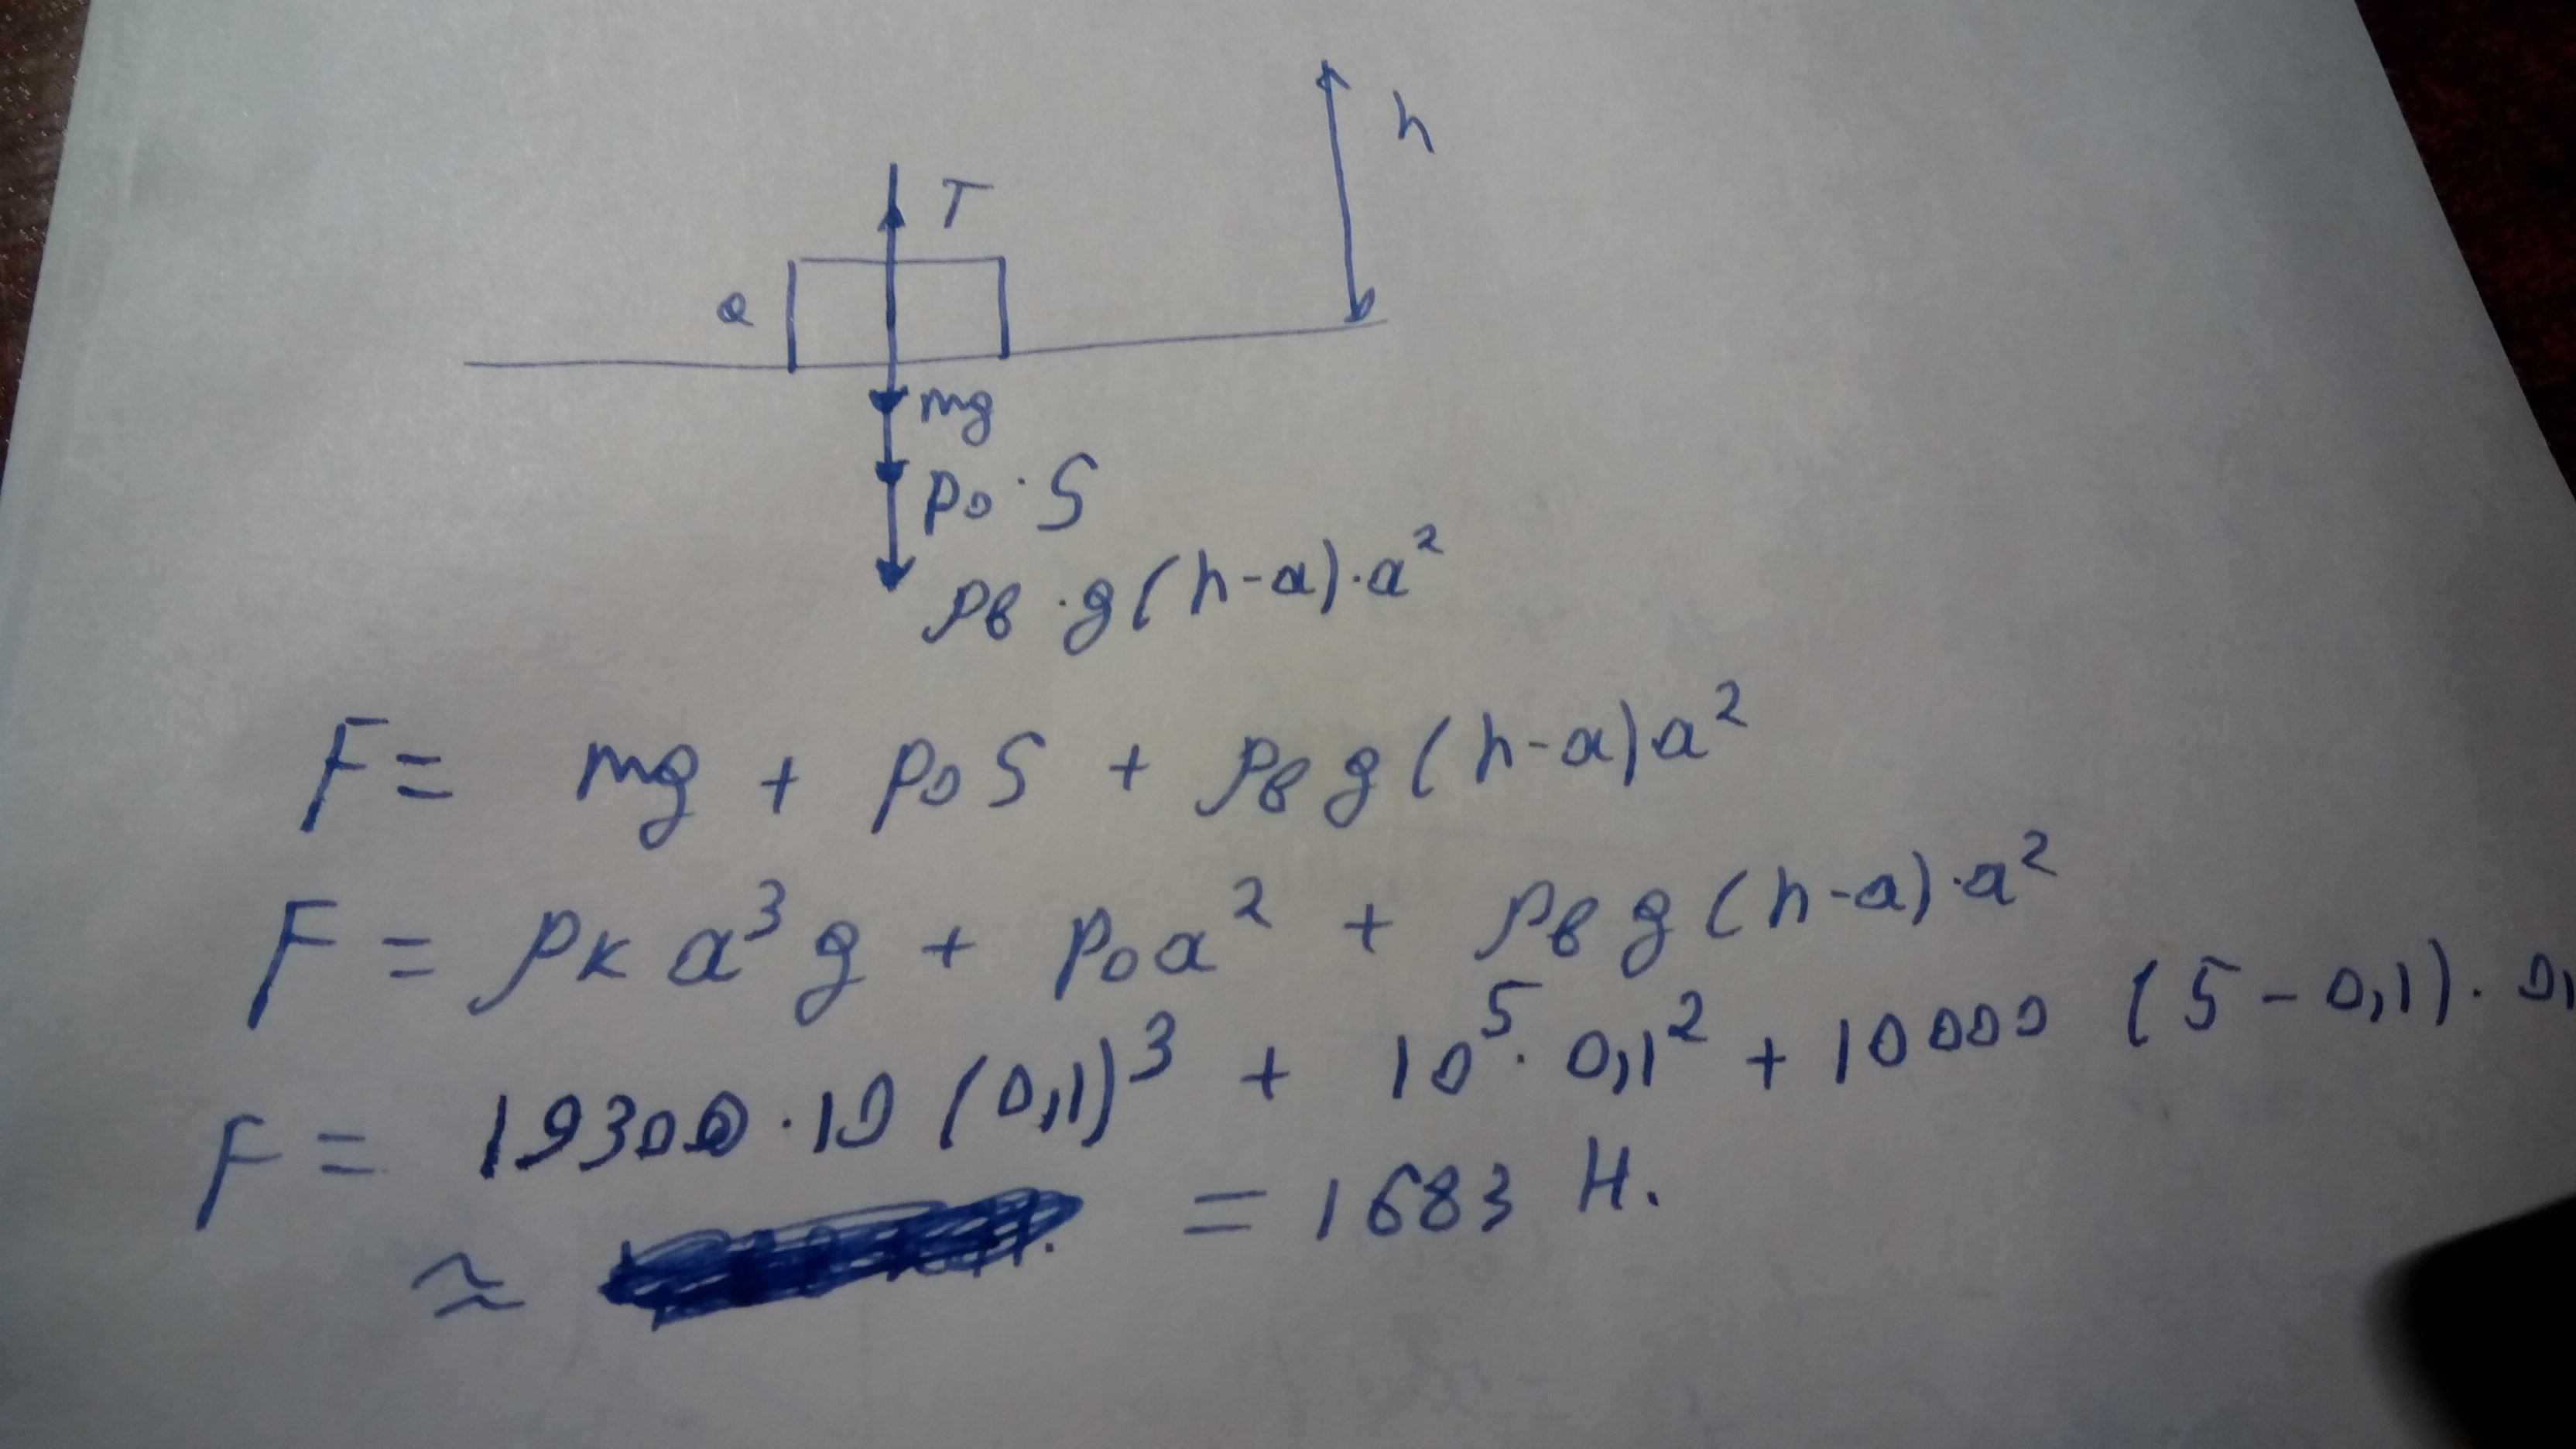 h
T
a
mg
p₀ · S
ρв · g(h-a) · a²
F = mg + p₀S + ρв g(h-a)a²
F = ρк a³ g + p₀a² + ρв g(h-a) · a²
F = 19300 · 10 (0,1)³ + 10⁵ · 0,1² + 10000 (5 - 0,1) · 0,
≈ = 1683 Н.